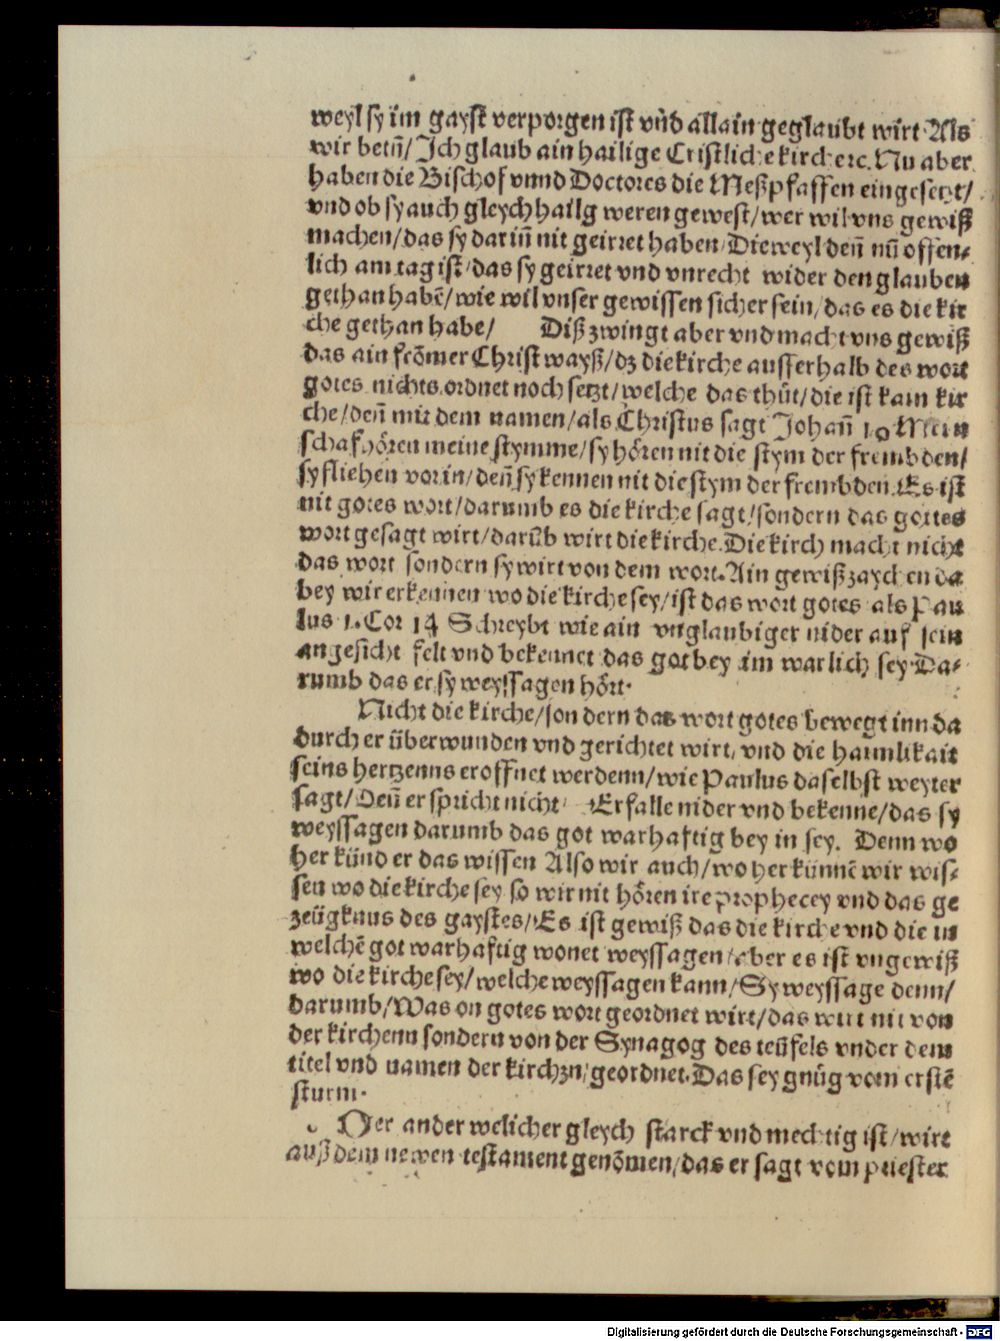 weyl sy im gayst verporgen ist vñd allain geglaubt wirt Als
wir betñ/ Jch glaub ain hailige Cristliche kirch etc. Nu aber
haben die Bischof vnnd Doctores die Meßpfaffen eingesetzt/
vnd ob sy auch gleych hailg weren gewest/ wer wil vns gewiß
machen/ das sy dariñ nit geirret haben/ Dieweyl deñ nũ offen-
lich am tag ist/ das sy geirret vnd vnrecht wider den glauben
gethan habẽ/ wie wil vnser gewissen sicher sein/ das es die kir
che gethan habe/ Diß zwingt aber vnd macht vns gewiß
das ain frõmer Christ wayß/ dz die kirche ausserhalb des wort
gotes nichts ordnet noch setzt/ welche das thůt/ die ist kain kir
che/ deñ mit dem namen/ als Christus sagt Johañ 10 Mein
schaf hören meine stymme/ sy hören nit die stym der frembden/
sy fliehen vor in/ deñ sy kennen nit die stym der frembden. Es ist
nit gotes wort/ darumb es die kirche sagt/ sondern das gottes
wort gesagt wirt/ darũb wirt die kirche. Die kirch macht nicht
das wort sondern sy wirt von dem wort. Ain gewiß zaychen da
bey wir erkennen wo die kirche sey/ ist das wort gotes als Pau
lus 1. Cor 14 Schreybt wie ain vnglaubiger nider auf sein
angesicht felt vnd bekennet das got bey im warlich sey Da-
rumb das er sy weyssagen hört.
Nicht die kirche/ son dern das wort gotes bewegt inn da
durch er überwunden vnd gerichtet wirt/ vnd die haimlikait
seins hertzenns eroffnet werdenn/ wie Paulus daselbst weyter
sagt/ Deñ er spricht nicht/ Er falle nider vnd bekenne/ das sy
weyssagen darumb das got warhaftig bey in sey. Denn wo
her künd er das wissen Also wir auch/ wo her künnẽ wir wis-
sen wo die kirche sey so wir nit hören ire prophecey vnd das ge
zeügknus des gaystes/ Es ist gewiß das die kirche vnd die in
welchẽ got warhaftig wonet weyssagen/ aber es ist vngewiß
wo die kirche sey/ welche weyssagen kann/ Sy weyssage denn/
darumb/ Was on gotes wort geordnet wirt/ das wirt nit von
der kirchenn sondern von der Synagog des teüfels vnder dem
titel vnd namen der kirchzn/ geordnet. Das sey gnůg vom erstẽ
sturm.
Der ander welicher gleych starck vnd mechtig ist/ wirt
auß dem newen testament genõmen/ das er sagt vom priester
Digitalisierung gefördert durch die Deutsche Forschungsgemeinschaft - DFG